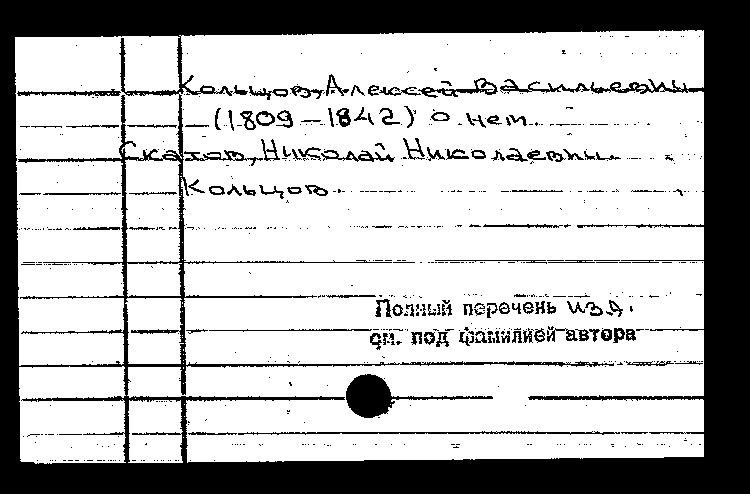 Кольцов, Алексей Васильевич
(1809-1842) о нем.
Скатов, Николай Николаевич.
Кольцов.
Полный перечень изд.
см. под фамилией автора